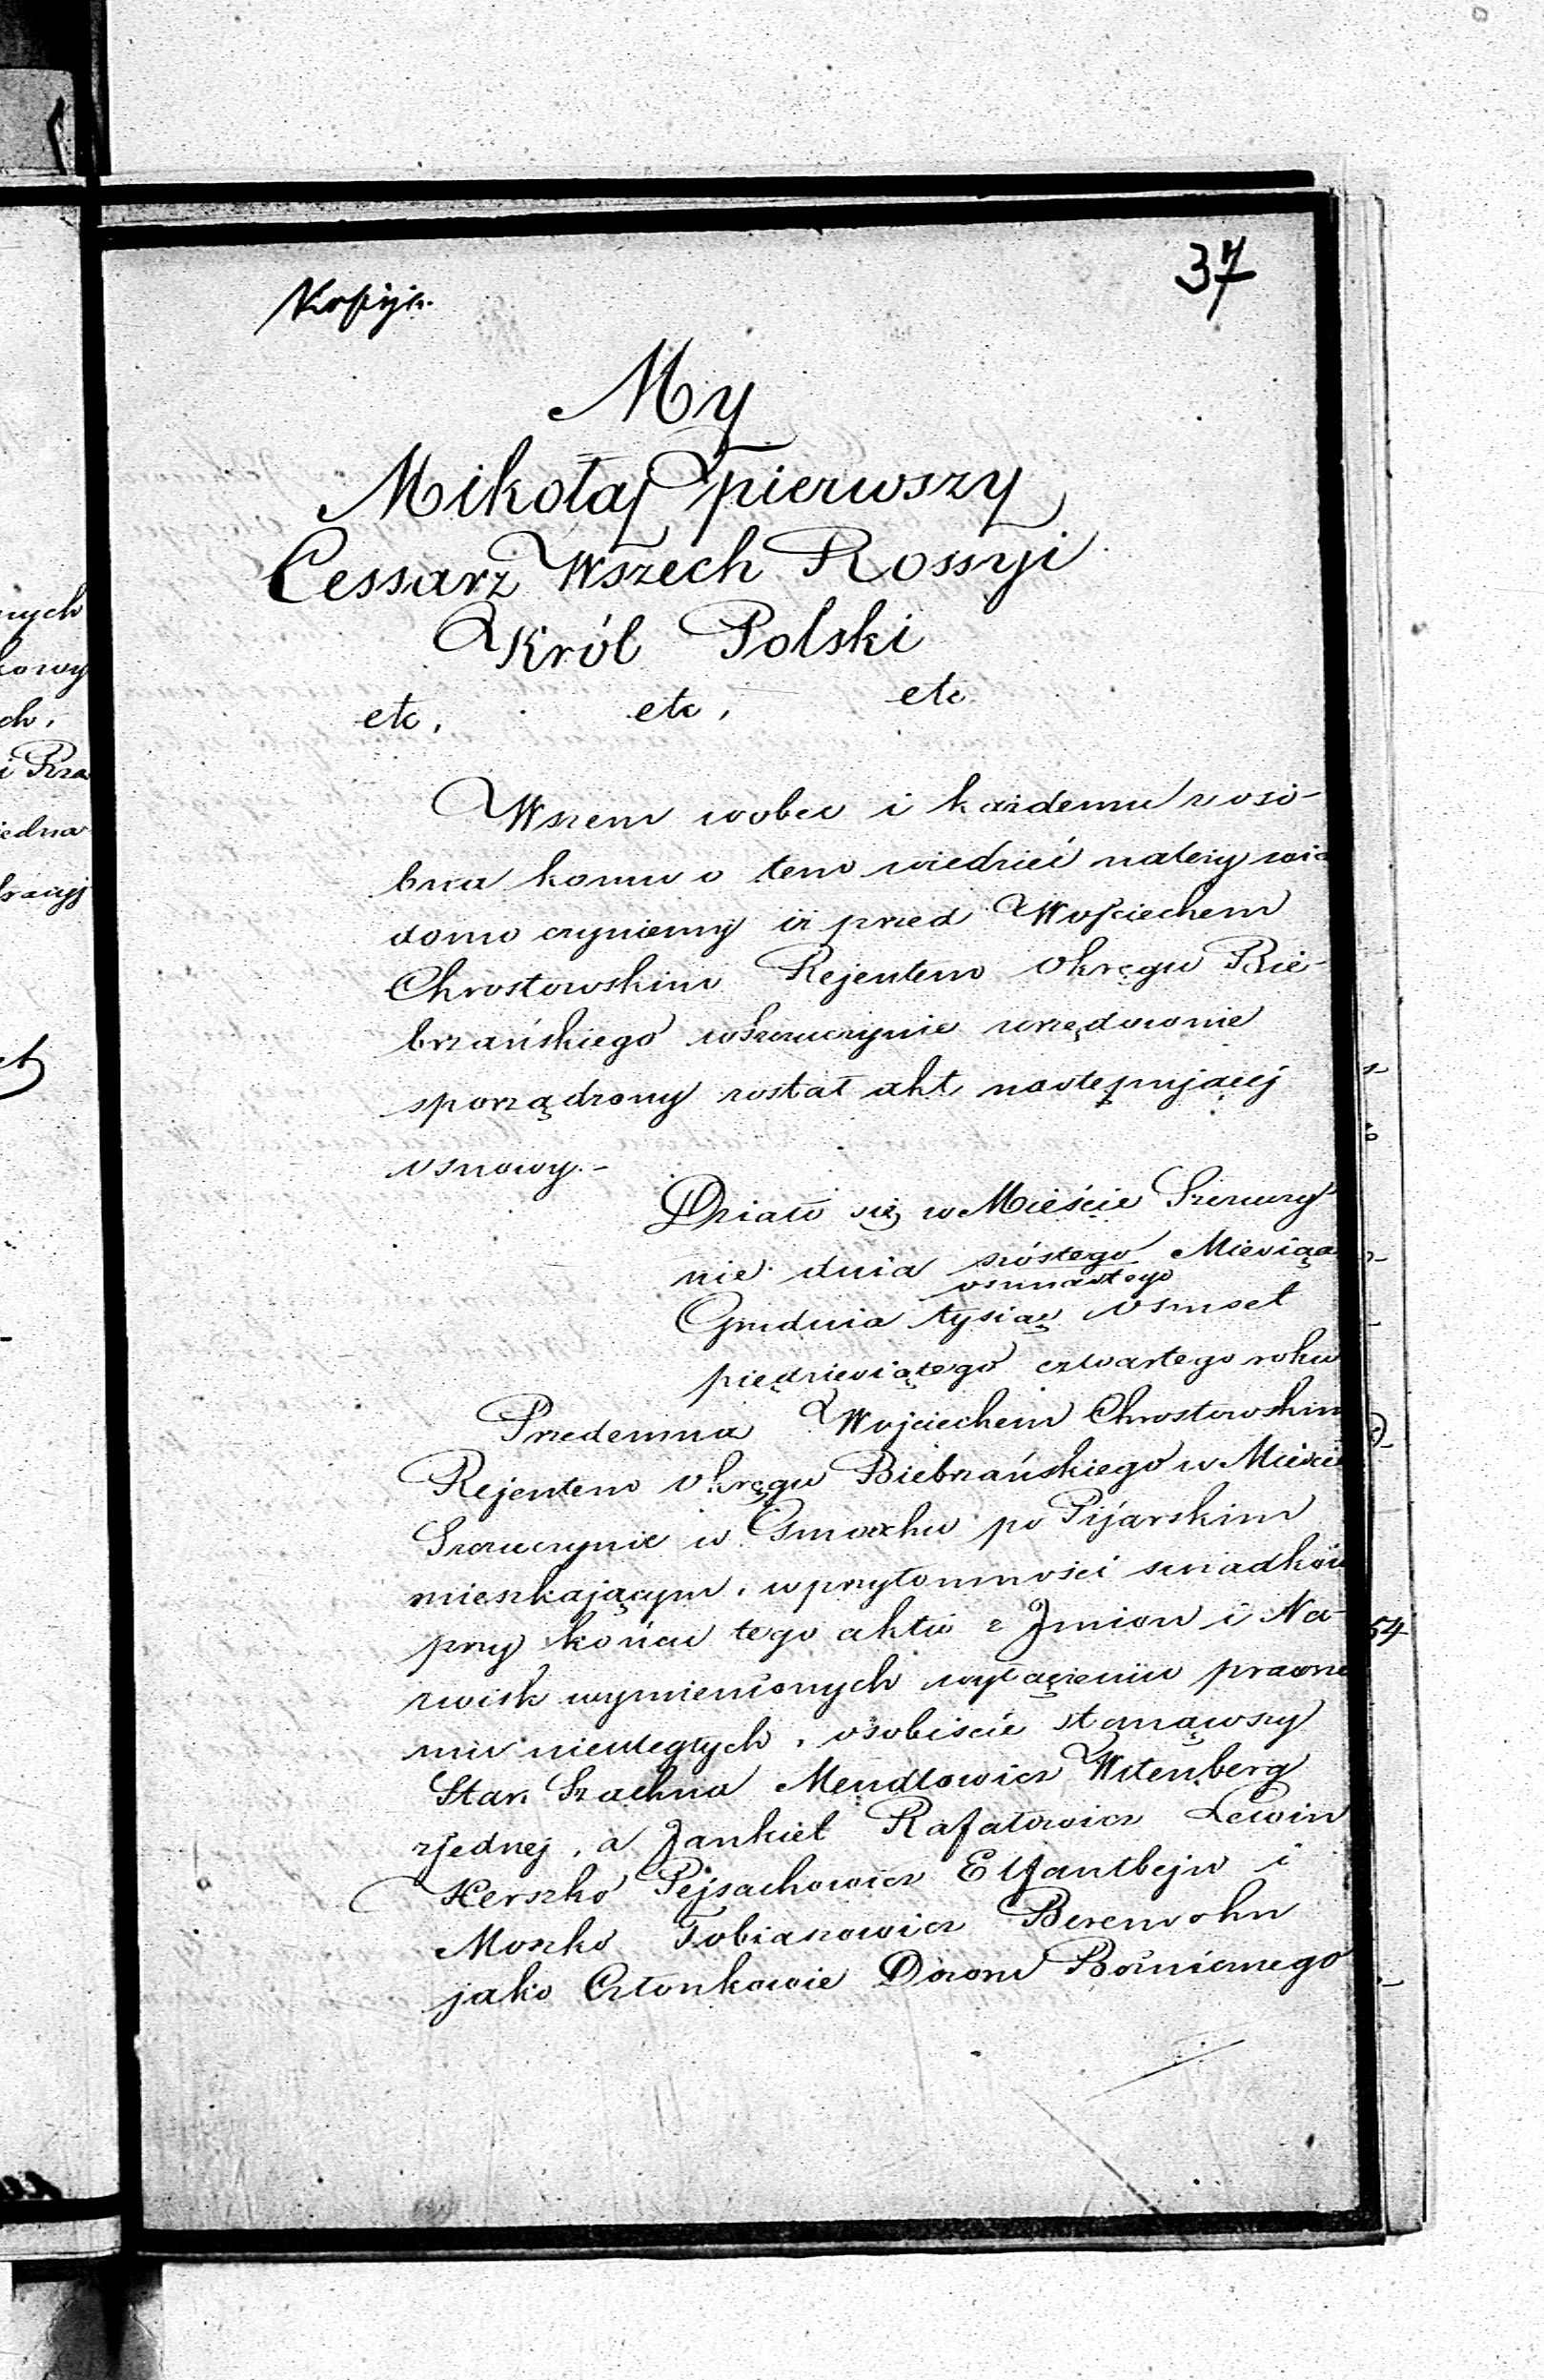 37
Kopija
My
Mikołaj pierwszy
Cessarz Wszech Rossyi
Król Polski
etc, etc, etc
Wszem wobec i każdemu z oso-
bna komu o tem wiedzieć należy wia
domo czyniemy iż przed Wojciechem
Chrostowskim Rejentem Okręgu Bie-
brzańskiego w Szczuczynie urzędownie
sporządzony został akt następującej
osnowy.-
Działo się w Mieście Szczuczy-
nie dnia szóstego Miesiąca
osmnastego
Grudnia tysiąc osmset
piędziesiątego czwartego roku
Przedemną Wojciechem Chrostowskim
Rejentem Okręgu Biebrzańskiego w Mieście
Szczuczynie w Gmachu po Pijarskim
mieszkającym, w przytomności świadków
przy końcu tego aktu z Jmion i Na-
zwisk wymienionych wyłączeniu prawne
mu nieuległych, osobiście stanąwszy
Star. Szachna Mendlowicz Witenberg
z jednej, a Jankiel Rafałowicz Lewin
Herszko Pejsachowicz Elfantbejn i
Moszko Tobiaszowicz Berensohn
jako Członkowie Dozoru Bożnicznego
nych
kowy
ch,
i Prza
iedna
54